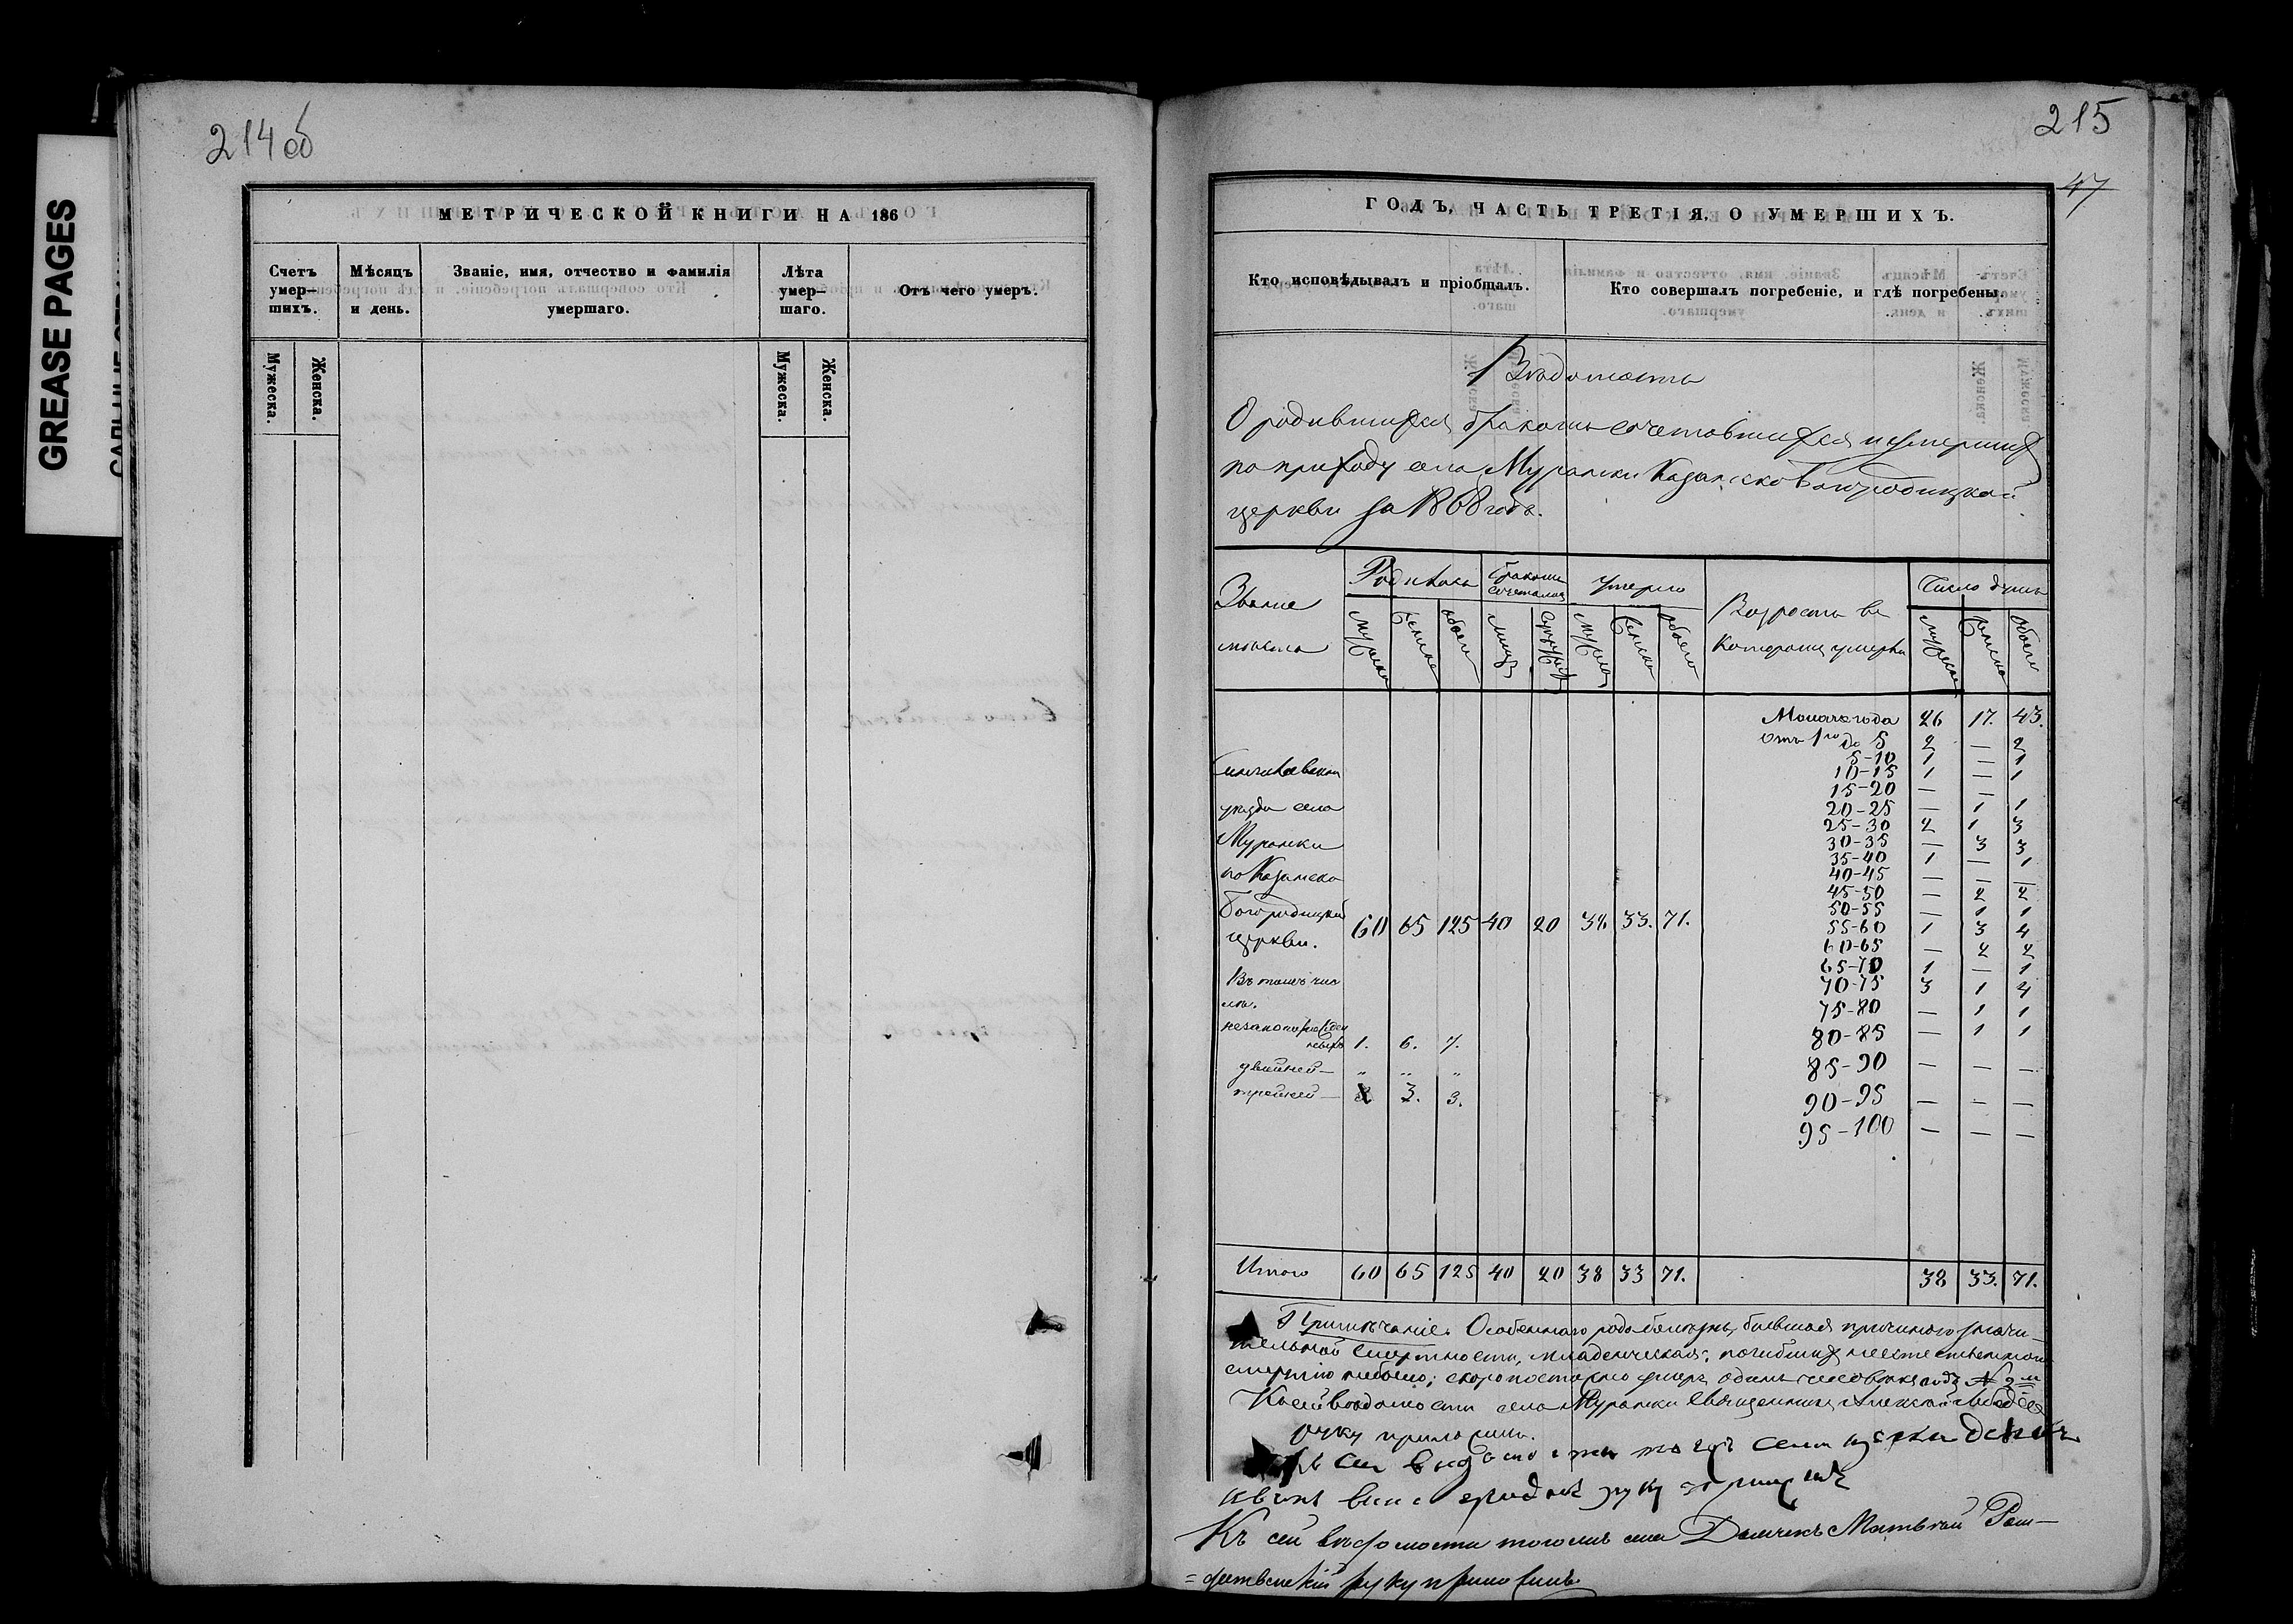 GREASE PAGES
214 об
МЕТРИЧЕСКОЙ КНИГИ НА 186
Счетъ умер–шихъ.
Мѣсяцъ и день.
Званіе, имя, отчество и фамилія умершаго.
Лѣта умер–шаго.
Отъ чего умеръ.
Мужеска.
Женска.
Мужеска.
Женска.
215
47
ГОДЪ, ЧАСТЬ ТРЕТІЯ, О УМЕРШИХЪ.
Кто исповѣдывалъ и пріобщалъ.
Кто совершалъ погребеніе, и гдѣ погребены.
Вѣдомость
О родившихся, бракомъ сочетавшихся и умершихъ
по приходу села Муранки Казанско Богородицкой
церкви за 1868 годъ.
Званіе
Родилось
Бракомъ сочеталось
Умерло
Возрастъ въ
которомъ умерли
Число душъ
мужска
женска
обоего
лицъ
супруж
мужска
женска
обоего
мужска
женска
обоего
Моложе года 26 17. 43.
отъ 1го до 5 2 — 2
5-10 1 — 1
10-15 1 — 1
15-20 — —
20-25 — 1 1
25-30 2 1 3
30-35 — 3 3
35-40 1 — 1
40-45 — — —
45-50 — 2 2
50-55 — 1 1
55-60 1 3 4
60-65 — 2 2
65-70 1 — 1
70-75 3 1 4
75-80 — 1 1
80-85 — 1 1
85-90 — — —
90-95 — — —
95-100 — — —
уѣзда села
Муранки
по Казанско
Богородицкой
церкви. 60 65 125 40 20 38. 33. 71.
Въ томъ чис
лѣ.
незаконорожден 1. 6. 7.
двойней — „ „ „
тройней — 3. 3.
Итого 60 65 125 40 20 38 33 71. 38 33. 71.
Примѣчаніе. Особеннаго рода болѣзнь, бывшая причиною значи–
тельной смертности, младенческая; погибшихъ неестественною
смертію небыло; скоропостижно умеръ одинъ человѣкъ подъ № 2м
Къ сей вѣдомости села Муранки Священникъ Алексѣй
руку приложилъ.
руку
Къ сей вѣдомости тогожъ села Дьячекъ Матвѣй Рож–
=дественскій руку приложилъ